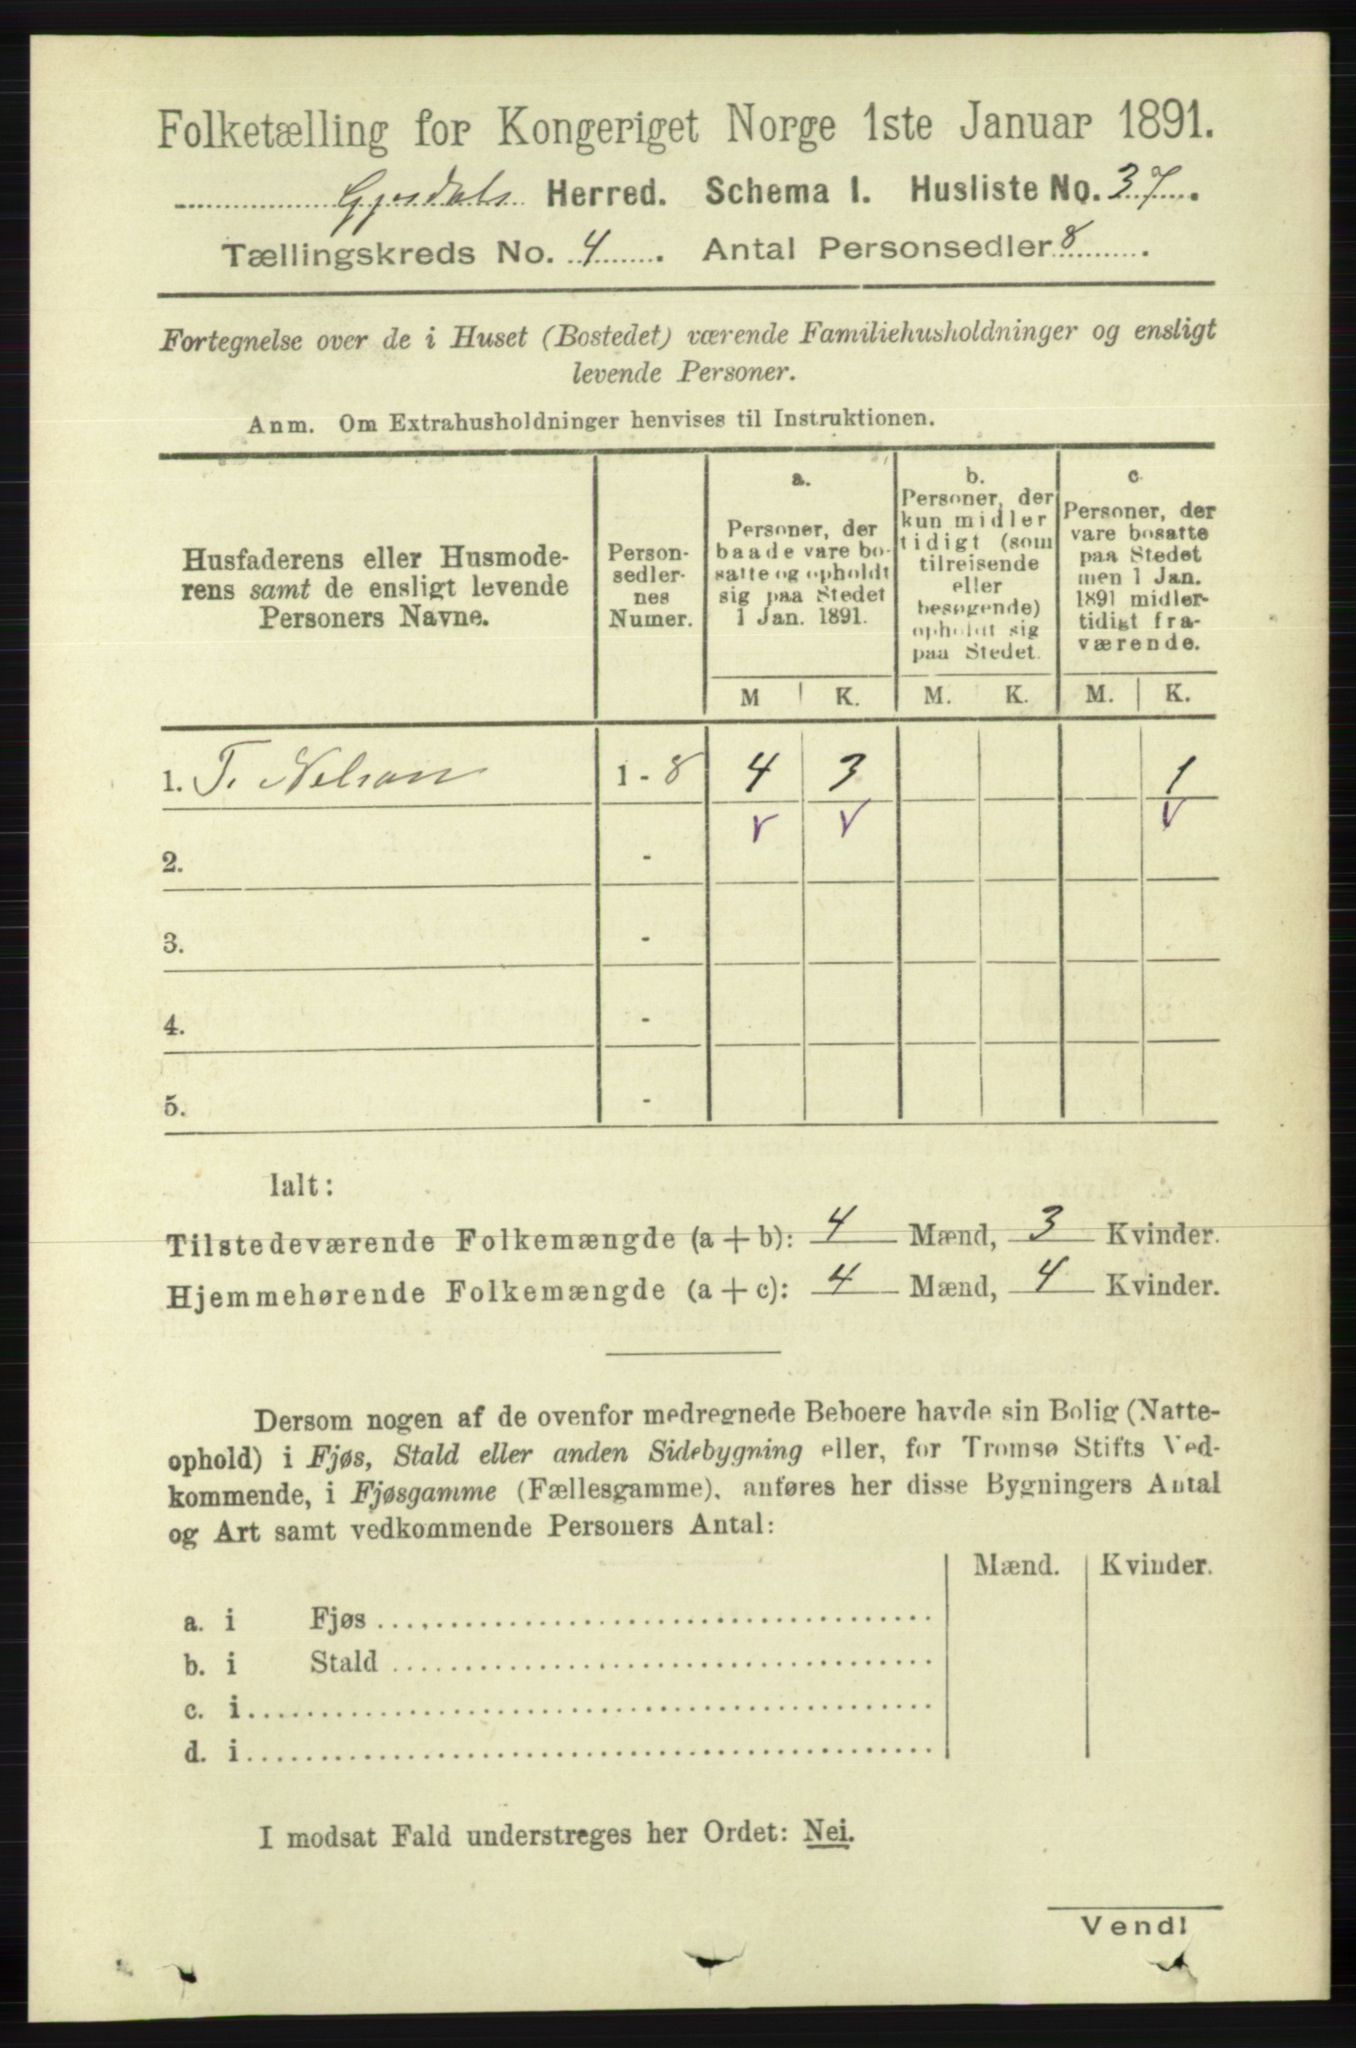 Folketælling for Kongeriget Norge 1ste Januar 1891.
Gjesdals Herred. Schema I. Husliste No. 37.
Tællingskreds No. 4. Antal Personsedler 8.
Fortegnelse over de i Huset (Bostedet) værende Familiehusholdninger og ensligt
levende Personer.
Anm. Om Extrahusholdninger henvises til Instruktionen.
Husfaderens eller Husmode-
rens samt de ensligt levende
Personers Navne.
Person-
sedler-
nes
Numer.
a.
Personer, der
baade vare bo-
satte og opholdt
sig paa Stedet
1 Jan. 1891.
b.
Personer, der
kun midler
tidigt (som
tilreisende
eller
besøgende)
opholdt sig
paa Stedet.
c.
Personer, der
vare bosatte
paa Stedet
men 1 Jan.
1891 midler-
tidigt fra-
værende.
M K. M. K. M. K.
1. T. Nelson 1 - 8 4 3 1
v v v
2. -
3. -
4. -
5. -
Ialt:
Tilstedeværende Folkemængde (a + b): 4 Mænd, 3 Kvinder.
Hjemmehørende Folkemængde (a + c): 4 Mænd, 4 Kvinder.
Dersom nogen af de ovenfor medregnede Beboere havde sin Bolig (Natte-
ophold) i Fjøs, Stald eller anden Sidebygning eller, for Tromsø Stifts Ved-
kommende, i Fjøsgamme (Fællesgamme), anføres her disse Bygningers Antal
og Art samt vedkommende Personers Antal:
Mænd. Kvinder.
a. i Fjøs
b. i Stald
c. i
d. i
I modsat Fald understreges her Ordet: Nei.
Vend!